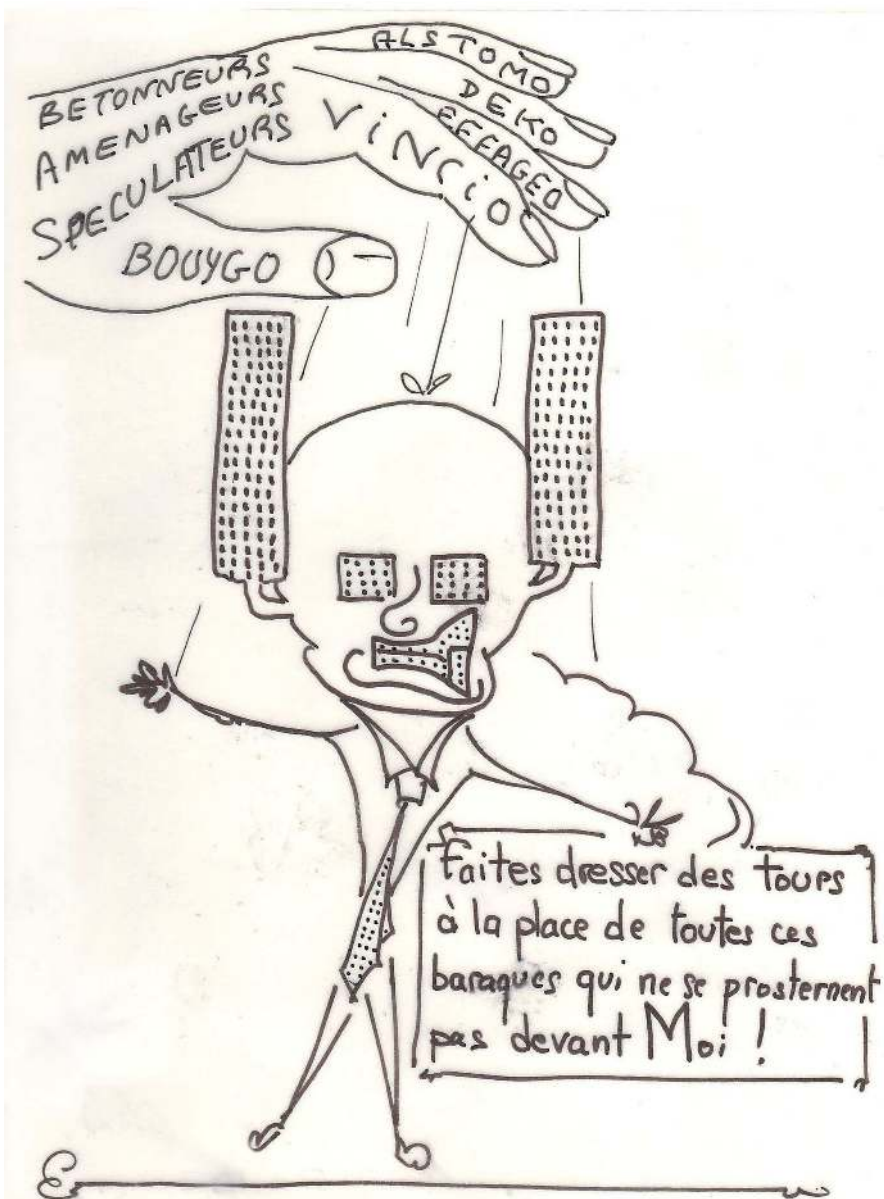 BETONNEURS
AMENAGEURS
SPECULATEURS
ALSTOMO
DEKO
EFFAGEO
VINCIO
BOUYGO
Faites dresser des tours
à la place de toutes ces
baraques qui ne se prosternent
pas devant Moi !